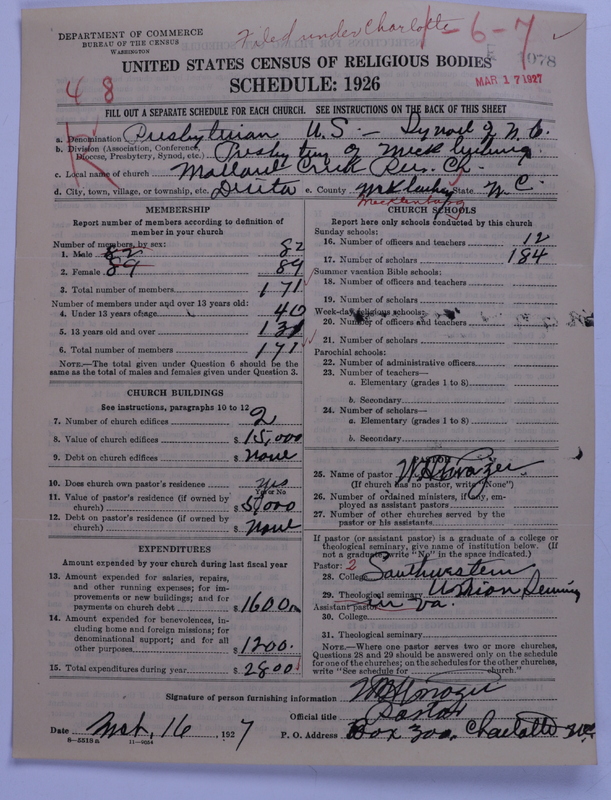 Filed under Charlotte
1-6-7
DEPARTMENT OF COMMERCE
BUREAU OF THE CENSUS
WASHINGTON
1078
UNITED STATES CENSUS OF RELIGIOUS BODIES
MAR 17 1927
SCHEDULE: 1926
4 8
FILL OUT A SEPARATE SCHEDULE FOR EACH CHURCH. SEE INSTRUCTIONS ON THE BACK OF THIS SHEET
a. Denomination Presbyterian U.S. - Synod of N.C.
b. Division (Association, Conference, Diocese, Presbytery, Synod, etc.) Presbytery of Mecklenburg
c. Local name of church Mallard Creek Pres. Ch.
d. City, town, village, or township, etc. Derita e. County Mecklenburg State N C.
Mecklenburg
MEMBERSHIP
Report number of members according to definition of
member in your church
Number of members, by sex:
1. Male 82 82
2. Female 89 89
3. Total number of members 171
Number of members under and over 13 years old:
4. Under 13 years of age 40
5. 13 years old and over 131
6. Total number of members 171
NOTE.—The total given under Question 6 should be the
same as the total of males and females given under Question 3.
CHURCH BUILDINGS
See instructions, paragraphs 10 to 12
7. Number of church edifices 2
8. Value of church edifices $ 15,000
9. Debt on church edifices $ None
10. Does church own pastor's residence yes
Yes or No
11. Value of pastor's residence (if owned by
church) $ 5,000
12. Debt on pastor's residence (if owned by
church) $ None
EXPENDITURES
Amount expended by your church during last fiscal year
13. Amount expended for salaries, repairs,
and other running expenses; for im-
provements or new buildings; and for
payments on church debt $ 1600
14. Amount expended for benevolences, in-
cluding home and foreign missions; for
denominational support; and for all
other purposes $ 1200.
15. Total expenditures during year $ 2800
CHURCH SCHOOLS
Report here only schools conducted by this church
Sunday schools:
16. Number of officers and teachers 12
17. Number of scholars 184
Summer vacation Bible schools:
18. Number of officers and teachers
19. Number of scholars
Week-day religious schools:
20. Number of officers and teachers
21. Number of scholars
Parochial schools:
22. Number of administrative officers
23. Number of teachers—
a. Elementary (grades 1 to 8)
b. Secondary
24. Number of scholars—
a. Elementary (grades 1 to 8)
b. Secondary
25. Name of pastor
(If church has no pastor, write "None")
26. Number of ordained ministers, if any, em-
ployed as assistant pastors
27. Number of other churches served by the
pastor or his assistants
If pastor (or assistant pastor) is a graduate of a college or
theological seminary, give name of institution below. (If
not a graduate, write "No" in the space indicated.)
Pastor: 2
28. College Southwestern
29. Theological seminary Union Seminary
Assistant pastor: in Va.
30. College
31. Theological seminary
NOTE.—Where one pastor serves two or more churches,
Questions 28 and 29 should be answered only on the schedule
for one of the churches; on the schedules for the other churches,
write "See schedule for church."
Signature of person furnishing information
Official title Pastor
Date Mch. 16, 1927 P. O. Address Box 300, Charlotte N.C.
8—5518 a 11—9084